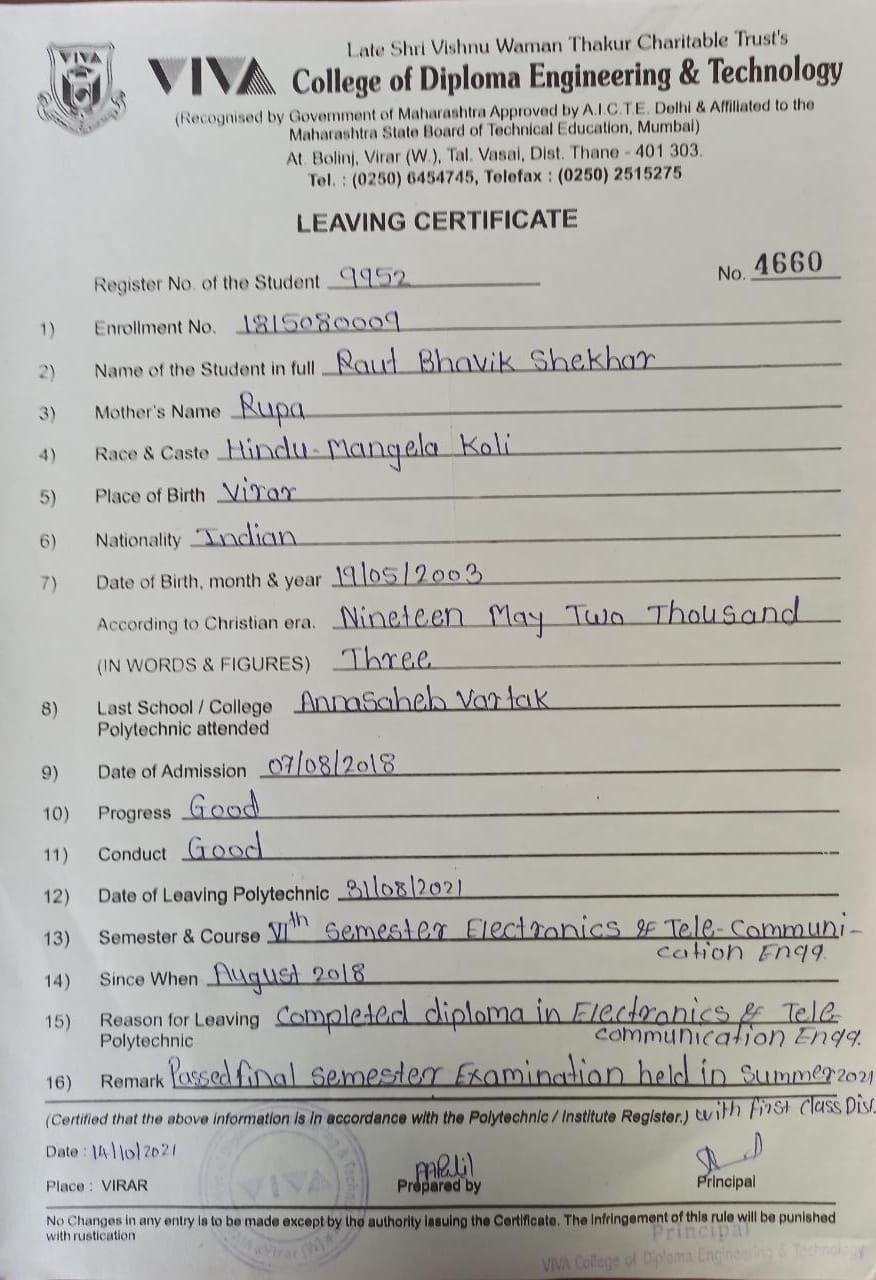 VIVA
Late Shri Vishnu Waman Thakur Charitable Trust's
VIVA College of Diploma Engineering & Technology
(Recognised by Government of Maharashtra Approved by A.I.C.T.E. Delhi & Affiliated to the
Maharashtra State Board of Technical Education, Mumbai)
At. Bolinj, Virar (W.), Tal. Vasai, Dist. Thane - 401 303.
Tel. : (0250) 6454745, Telefax : (0250) 2515275
LEAVING CERTIFICATE
Register No. of the Student 9952 No. 4660
1) Enrollment No. 1815080009
2) Name of the Student in full Raut Bhavik Shekhar
3) Mother's Name Rupa
4) Race & Caste Hindu-Mangela Koli
5) Place of Birth Virar
6) Nationality Indian
7) Date of Birth, month & year 19/05/2003
According to Christian era. Nineteen May Two Thousand
(IN WORDS & FIGURES) Three
8) Last School / College Annasaheb Vartak
Polytechnic attended
9) Date of Admission 07/08/2018
10) Progress Good
11) Conduct Good
12) Date of Leaving Polytechnic 31/08/2021
13) Semester & Course VIth Semester Electronics & Tele-Communi-
cation Engg.
14) Since When August 2018
15) Reason for Leaving Completed diploma in Electronics & Tele
Polytechnic communication Engg.
16) Remark Passed final semester Examination held in Summer 2021
(Certified that the above information is in accordance with the Polytechnic / Institute Register.) with first class Dis.
Date : 14/10/2021
Place : VIRAR Prepared by Principal
No Changes in any entry is to be made except by the authority issuing the Certificate. The Infringement of this rule will be punished
with rustication
Principal
VIVA College of Diploma Engineering & Technology